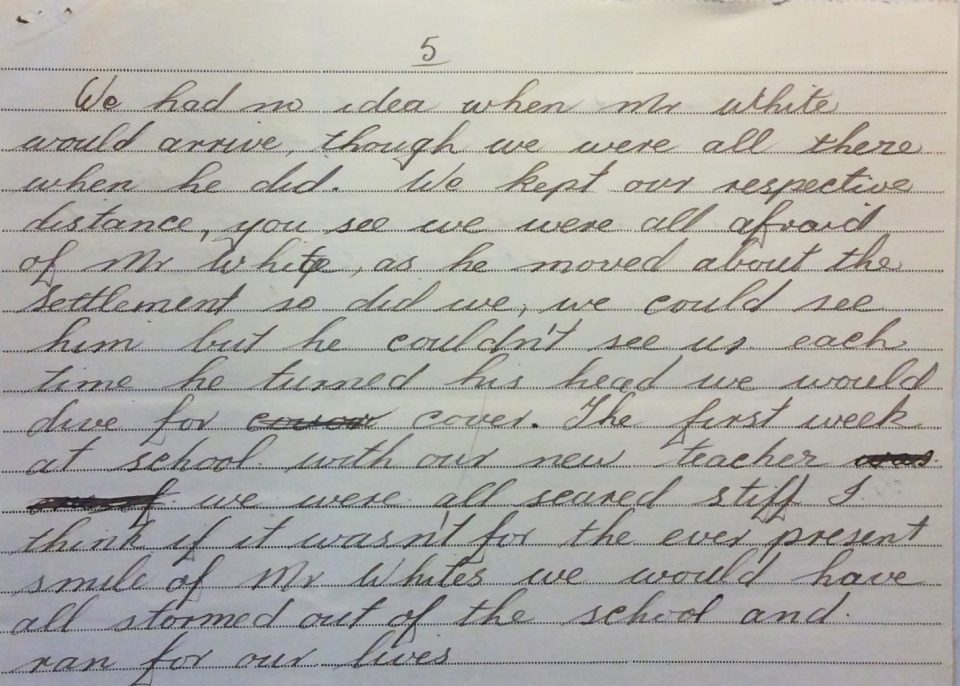 5
We had no idea when Mr White
would arrive, though we were all there
when he did. We kept our respective
distance, you see we were all afraid
of Mr White, as he moved about the
settlement so did we, we could see
him but he couldn't see us each
time he turned his head we would
dive for cover. The first week
at school with our new teacher
we were all scared stiff I
think if it wasn't for the ever present
smile of Mr Whites we would have
all stormed out of the school and
ran for our lives